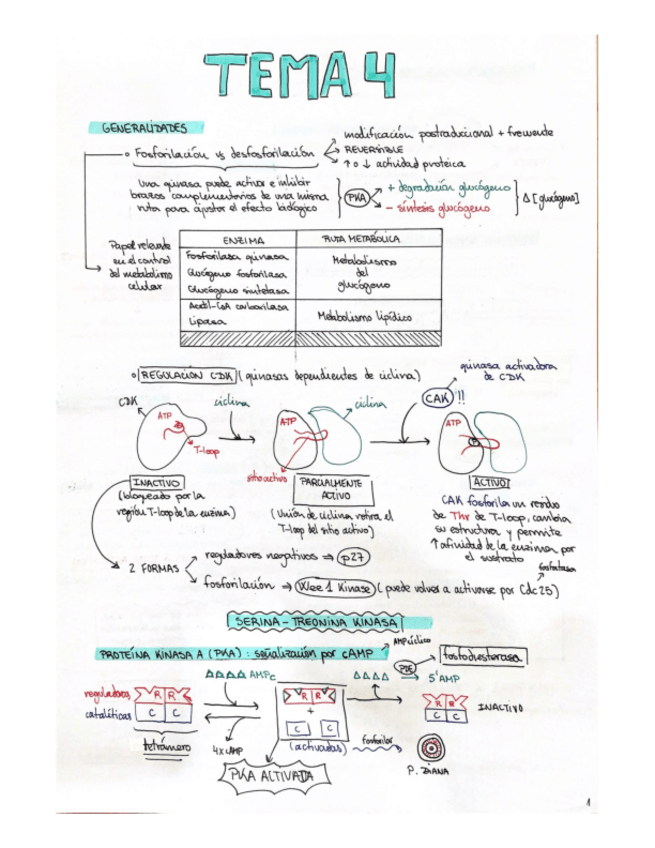 TEMA 4
GENERALIDADES
Fosforilación vs desfosforilación
modificación postraducional + frecuente
REVERSIBLE
↑ o ↓ actividad proteica
Una quinasa puede activar e inhibir
brazos complementarios de una misma
ruta para ajustar el efecto biológico
PKA
+ degradación glucógeno
- síntesis glucógeno
Δ [glucógeno]
Papel relevante
en el control
del metabolismo
celular
ENZIMA
RUTA METABÓLICA
Fosforilasa quinasa
Glucógeno fosforilasa
Glucógeno sintetasa
Metabolismo
del
glucógeno
Acetil-CoA carboxilasa
Lipasa
Metabolismo lipídico
REGULACIÓN CDK (quinasas dependientes de ciclina)
quinasa activadora
de CDK
CDK
ciclina
ciclina
CAK !!
ATP
T-loop
ATP
sitio activo
ATP
P
INACTIVO
(bloqueado por la
región T-loop de la enzima)
PARCIALMENTE
ACTIVO
(Unión de ciclina retira el
T-loop del sitio activo)
ACTIVO
CAK fosforila un residuo
de Thr de T-loop, cambia
su estructura y permite
↑ afinidad de la enzima por
el sustrato
2 FORMAS
reguladores negativos ⇒ p27
fosforilación → Wee 1 Kinase (puede volver a activarse por Cdc25)
fosfatasa
SERINA-TREONINA KINASA
PROTEÍNA KINASA A (PKA): señalización por cAMP
AMP cíclico
PDE
fosfodiesterasa
AMPc
5'AMP
reguladoras
R R
catalíticas
C C
tetrámero
4x cAMP
R R
+
C C
(activadas)
fosforilar
R R
C C
INACTIVO
P. DIANA
PKA ACTIVADA
1